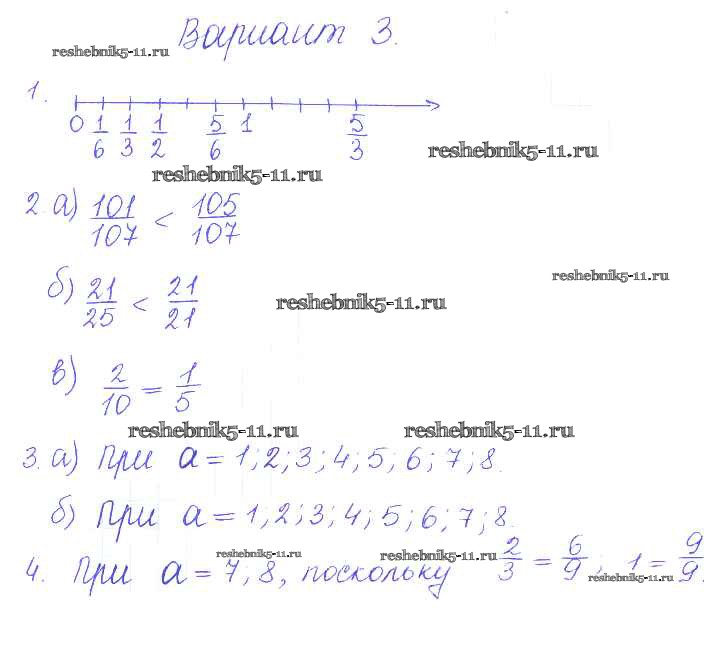 Вариант 3.
reshebnik5-11.ru
1.
0 1/6 1/3 1/2 5/6 1 5/3
reshebnik5-11.ru
reshebnik5-11.ru
2. а) 101/107 < 105/107
reshebnik5-11.ru
б) 21/25 < 21/21
reshebnik5-11.ru
в) 2/10 = 1/5
reshebnik5-11.ru reshebnik5-11.ru
3. а) При а = 1; 2; 3; 4; 5; 6; 7; 8.
б) При а = 1; 2; 3; 4; 5; 6; 7; 8.
reshebnik5-11.ru reshebnik5-11.ru
4. При а = 7; 8, поскольку 2/3 = 6/9; 1 = 9/9.
reshebnik5-11.ru